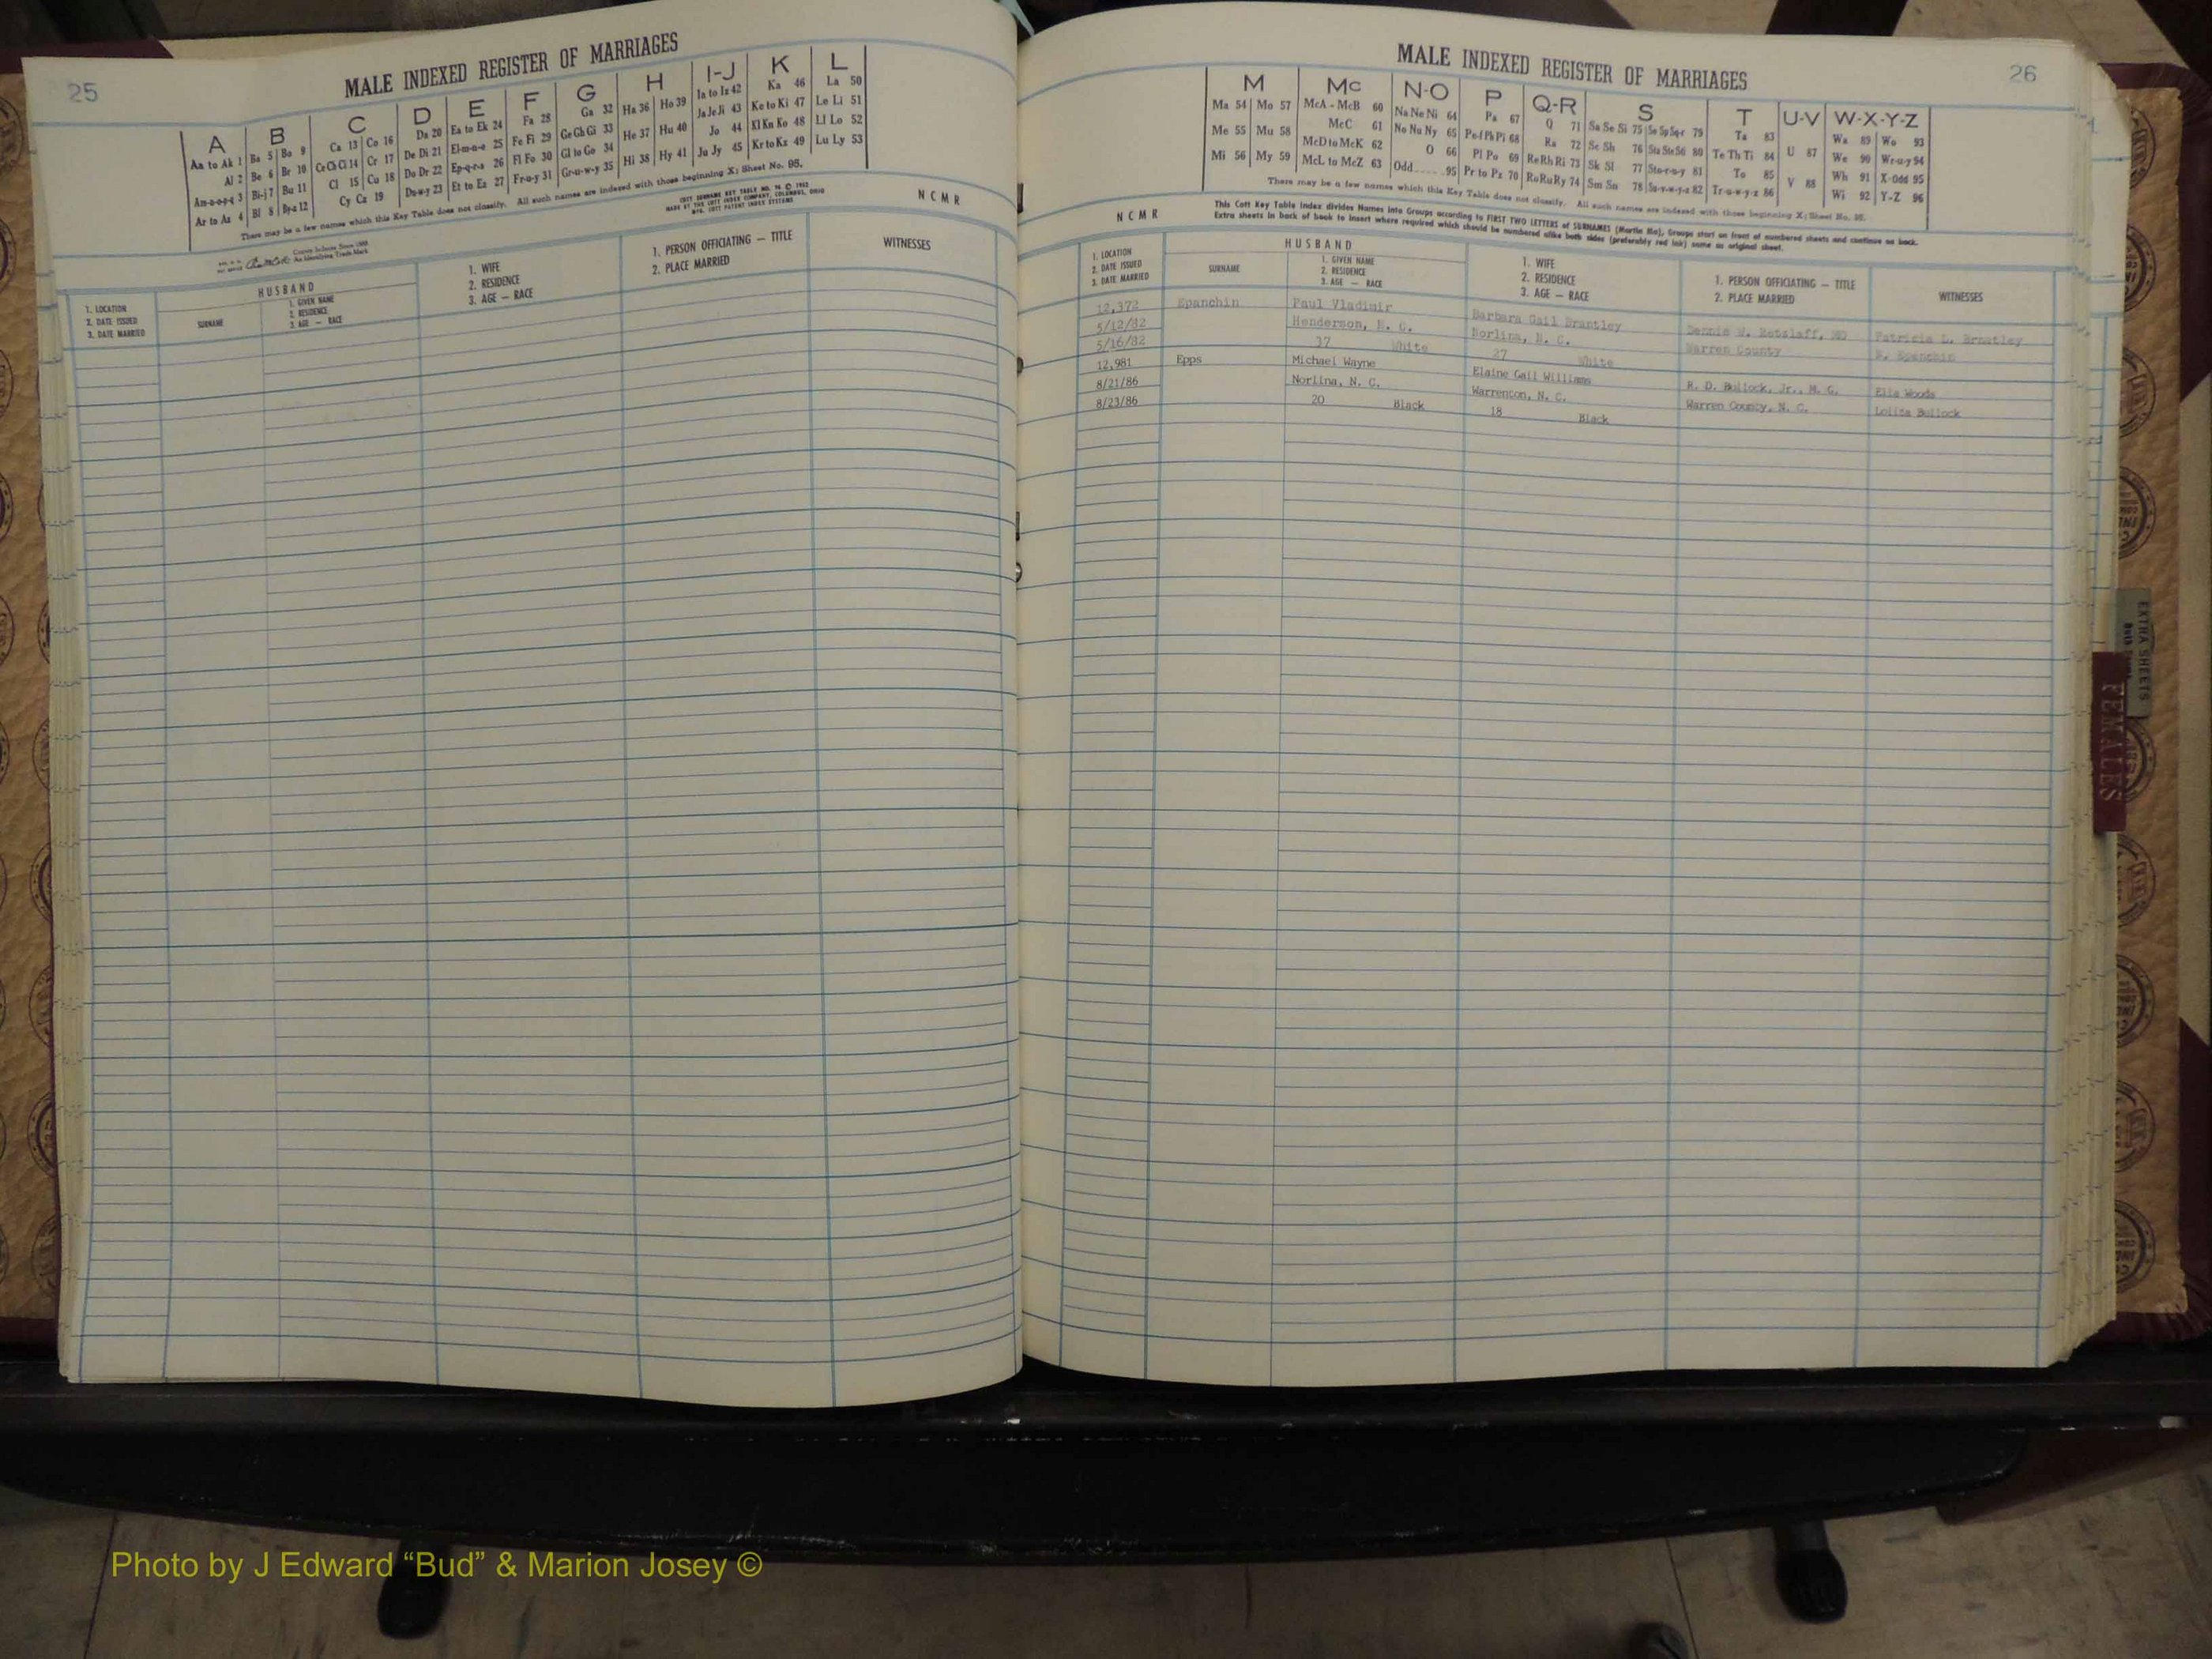 25
MALE INDEXED REGISTER OF MARRIAGES
A B C D E F G H I-J K L
Aa to Ak 1 Ba 5 Bo 9 Ca 13 Co 16 Da 20 Ea to Ek 24 Fa 28 Ga 32 Ha 36 Ho 39 Ia to Iz 42 Ka 46 La 50
Al 2 Be 6 Br 10 Ce Ch Ci 14 Cr 17 De Di 21 El-m-n-o 25 Fe Fi 29 Ge Gh Gi 33 He 37 Hu 40 Ja Je Ji 43 Ke to Ki 47 Le Li 51
Am-n-o-p-q 3 Bi-j 7 Bu 11 Cl 15 Cu 18 Do Dr 22 Ep-q-r-s 26 Fl Fo 30 Gl to Go 34 Hi 38 Hy 41 Jo 44 Kl Kn Ko 48 Ll Lo 52
Ar to Az 4 Bl 8 By-z 12 Cy Cz 19 Du-w-y 23 Et to Ez 27 Fr-u-y 31 Gr-u-w-y 35 Ju Jy 45 Kr to Kz 49 Lu Ly 53
There may be a few names which this Key Table does not classify. All such names are indexed with those beginning X; Sheet No. 95.
COTT SURNAME KEY TABLE NO. 96 © 1952
MADE BY THE COTT INDEX COMPANY, COLUMBUS, OHIO
MFG. COTT PATENT INDEX SYSTEMS
County Indexes Since 1888
An Identifying Trade Mark
N C M R
HUSBAND
1. LOCATION
2. DATE ISSUED
3. DATE MARRIED
SURNAME
1. GIVEN NAME
2. RESIDENCE
3. AGE — RACE
1. WIFE
2. RESIDENCE
3. AGE — RACE
1. PERSON OFFICIATING — TITLE
2. PLACE MARRIED
WITNESSES
MALE INDEXED REGISTER OF MARRIAGES
26
M Mc N-O P Q-R S T U-V W-X-Y-Z
Ma 54 Mo 57 McA - McB 60 Na Ne Ni 64 Pa 67 Q 71 Sa Se Si 75 So Sp Sq-r 79 Ta 83 U 87 Wa 89 Wo 93
Me 55 Mu 58 McC 61 No Nu Ny 65 Pe-f Ph Pi 68 Ra 72 Sc Sh 76 Sta Ste Sti 80 Te Th Ti 84 V 88 We 90 Wr-u-y 94
Mi 56 My 59 McD to McK 62 O 66 Pl Po 69 Re Rh Ri 73 Sk Sl 77 Sto-r-u-y 81 To 85 Wh 91 X-Odd 95
McL to McZ 63 Odd 95 Pr to Pz 70 Ro Ru Ry 74 Sm Sn 78 Su-v-w-y-z 82 Tr-u-w-y-z 86 Wi 92 Y-Z 96
There may be a few names which this Key Table does not classify. All such names are indexed with those beginning X; Sheet No. 95.
N C M R
This Cott Key Table Index divides Names into Groups according to FIRST TWO LETTERS of SURNAMES (Martin Ma), Groups start on front of numbered sheets and continue on back.
Extra sheets in back of book to insert where required which should be numbered alike both sides (preferably red ink) same as original sheet.
HUSBAND
1. LOCATION
2. DATE ISSUED
3. DATE MARRIED
SURNAME
1. GIVEN NAME
2. RESIDENCE
3. AGE — RACE
1. WIFE
2. RESIDENCE
3. AGE — RACE
1. PERSON OFFICIATING — TITLE
2. PLACE MARRIED
WITNESSES
12,372 Epanchin Paul Vladimir Barbara Gail Brantley Dennis W. Retzlaff, MG Patricia L. Brantley
5/12/82 Henderson, N. C. Norlina, N. C. Warren County Epanchin
5/16/82 37 White 27 White
12,981 Epps Michael Wayne Elaine Gail Williams R. D. Bullock, Jr., M. G. Ella Woods
8/21/86 Norlina, N. C. Warrenton, N. C. Warren County, N. C. Lolita Bullock
8/23/86 20 Black 18 Black
EXTRA SHEETS
FEMALES
Photo by J Edward “Bud” & Marion Josey ©